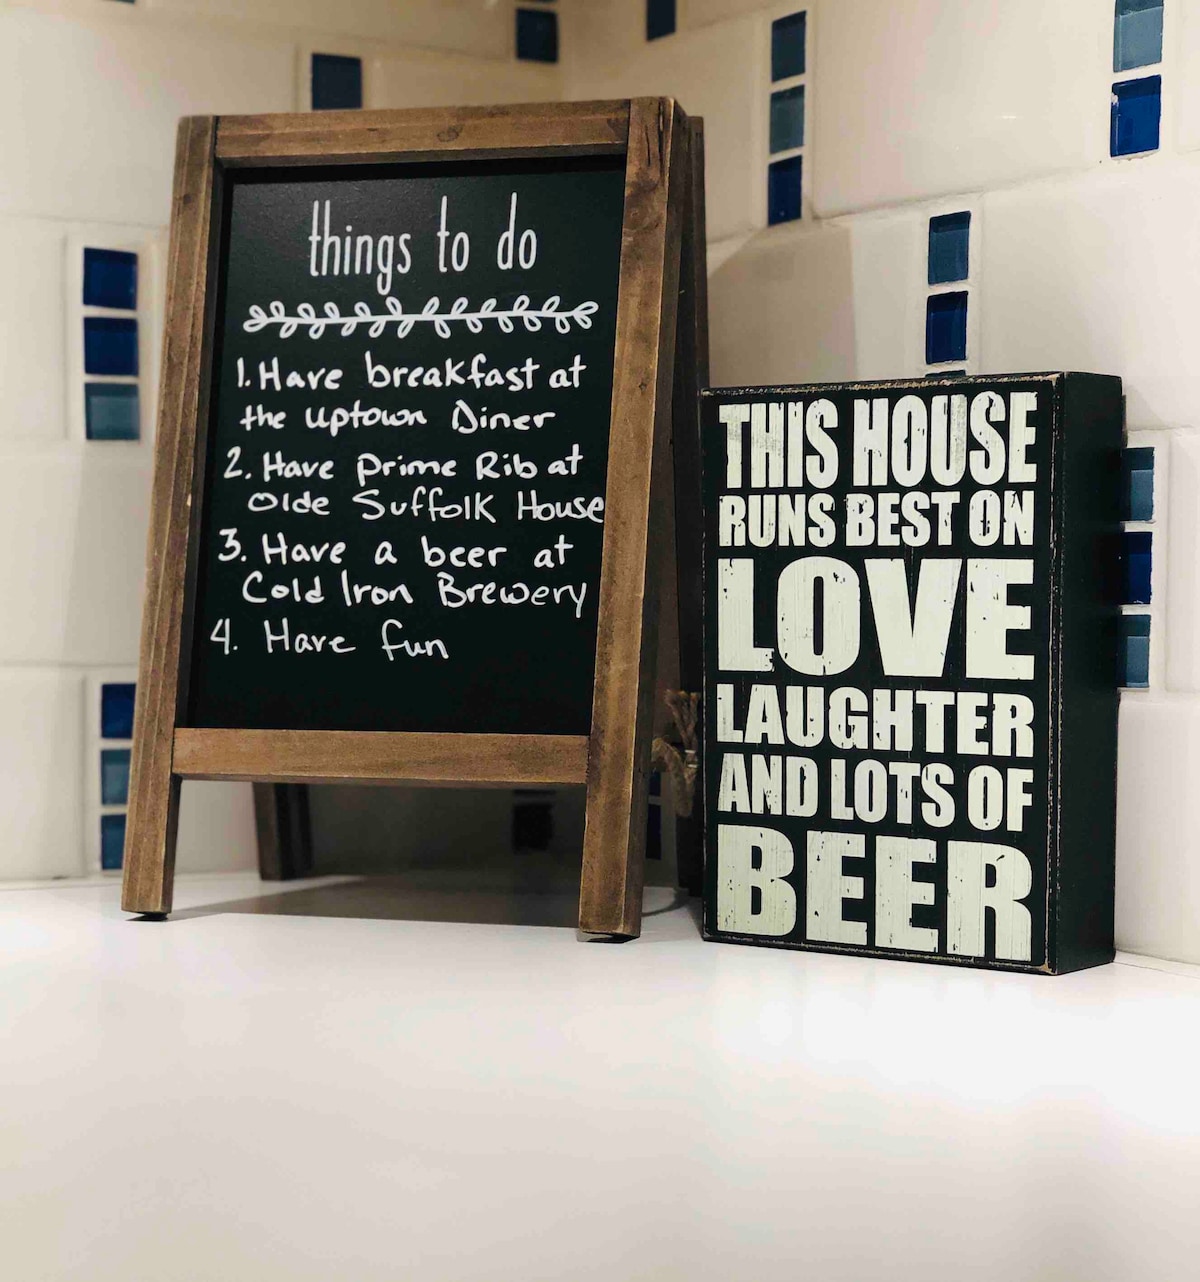 things to do
1. Have breakfast at
the Uptown Diner
2. Have Prime Rib at
Olde Suffolk House
3. Have a beer at
Cold Iron Brewery
4. Have fun
THIS HOUSE
RUNS BEST ON
LOVE
LAUGHTER
AND LOTS OF
BEER